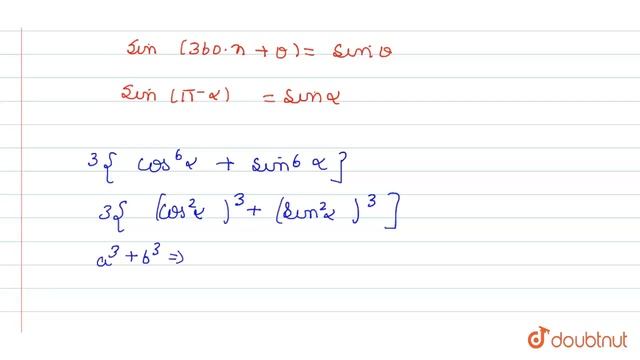 sin (360·n + θ) = sin θ
sin (π - α) = sin α
3{ cos⁶α + sin⁶ α ]
3{ (cos²α )³ + (sin²α )³ ]
a³ + b³ ⇒
doubtnut